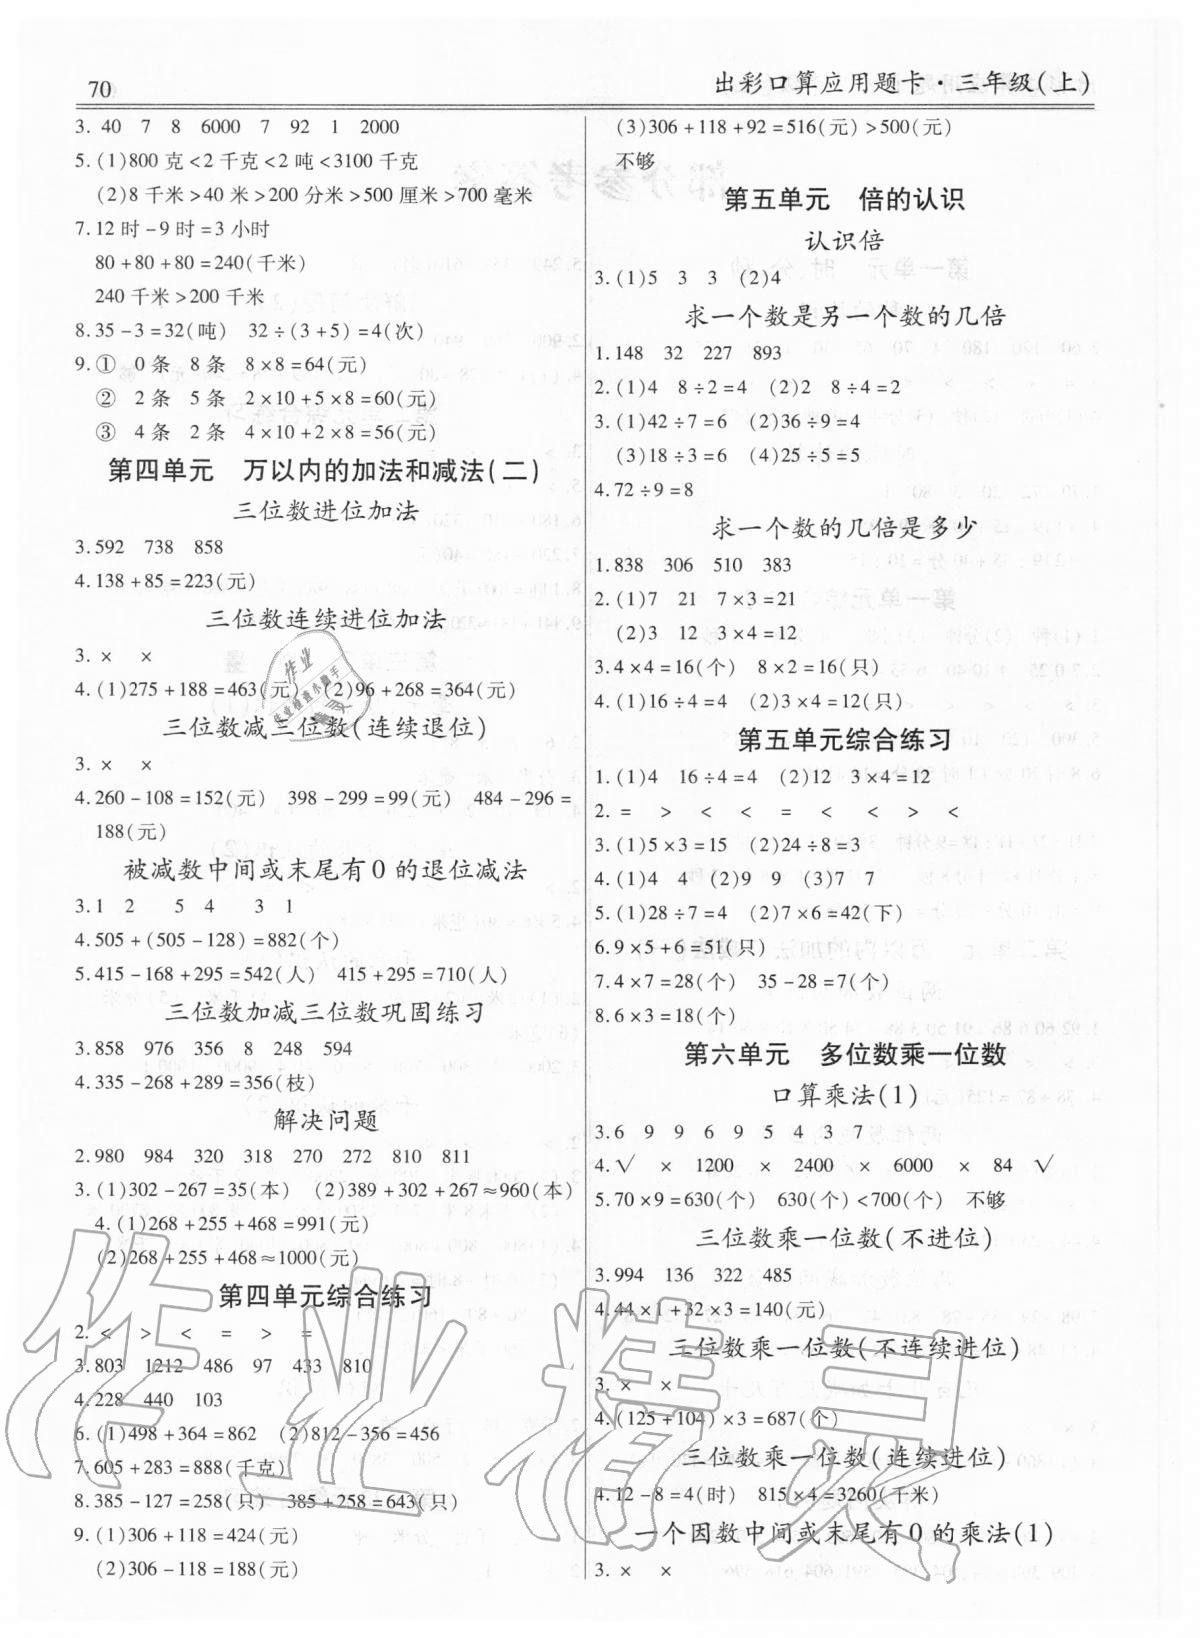 70
出彩口算应用题卡·三年级(上)
3. 40 7 8 6000 7 92 1 2000
5. (1)800 克<2 千克<2 吨<3100 千克
(2)8 千米>40 米>200 分米>500 厘米>700 毫米
7.12 时-9 时=3 小时
80+80+80=240(千米)
240 千米>200 千米
8.35-3=32(吨) 32÷(3+5)=4(次)
9.① 0 条 8 条 8×8=64(元)
② 2 条 5 条 2×10+5×8=60(元)
③ 4 条 2 条 4×10+2×8=56(元)
第四单元 万以内的加法和减法(二)
三位数进位加法
3.592 738 858
4.138+85=223(元)
三位数连续进位加法
3. × ×
4. (1)275+188=463(元) (2)96+268=364(元)
三位数减三位数(连续退位)
3. × ×
4.260-108=152(元) 398-299=99(元) 484-296=
188(元)
被减数中间或末尾有 0 的退位减法
3.1 2 5 4 3 1
4.505+(505-128)=882(个)
5.415-168+295=542(人) 415+295=710(人)
三位数加减三位数巩固练习
3.858 976 356 8 248 594
4.335-268+289=356(枝)
解决问题
2.980 984 320 318 270 272 810 811
3. (1)302-267=35(本) (2)389+302+267≈960(本)
4. (1)268+255+468=991(元)
(2)268+255+468≈1000(元)
第四单元综合练习
2. < > < = > =
3.803 1212 486 97 433 810
4.228 440 103
6. (1)498+364=862 (2)812-356=456
7.605+283=888(千克)
8.385-127=258(只) 385+258=643(只)
9. (1)306+118=424(元)
(2)306-118=188(元)
(3)306+118+92=516(元)>500(元)
不够
第五单元 倍的认识
认识倍
3. (1)5 3 3 (2)4
求一个数是另一个数的几倍
1.148 32 227 893
2. (1)4 8÷2=4 (2)2 8÷4=2
3. (1)42÷7=6 (2)36÷9=4
(3)18÷3=6 (4)25÷5=5
4.72÷9=8
求一个数的几倍是多少
1.838 306 510 383
2. (1)7 21 7×3=21
(2)3 12 3×4=12
3.4×4=16(个) 8×2=16(只)
4. (1)16÷4=4 (2)3×4=12(只)
第五单元综合练习
1. (1)4 16÷4=4 (2)12 3×4=12
2. = > < < = < < > <
3. (1)5×3=15 (2)24÷8=3
4. (1)4 4 (2)9 9 (3)7 7
5. (1)28÷7=4 (2)7×6=42(下)
6.9×5+6=51(只)
7.4×7=28(个) 35-28=7(个)
8.6×3=18(个)
第六单元 多位数乘一位数
口算乘法(1)
3.6 9 9 6 9 5 4 3 7
4.√ × 1200 × 2400 × 6000 × 84 √
5.70×9=630(个) 630(个)<700(个) 不够
三位数乘一位数(不进位)
3.994 136 322 485
4.44×1+32×3=140(元)
三位数乘一位数(不连续进位)
3. × ×
4. (125+104)×3=687(个)
三位数乘一位数(连续进位)
4.12-8=4(时) 815×4=3260(千米)
一个因数中间或末尾有 0 的乘法(1)
3. × ×
作业精灵